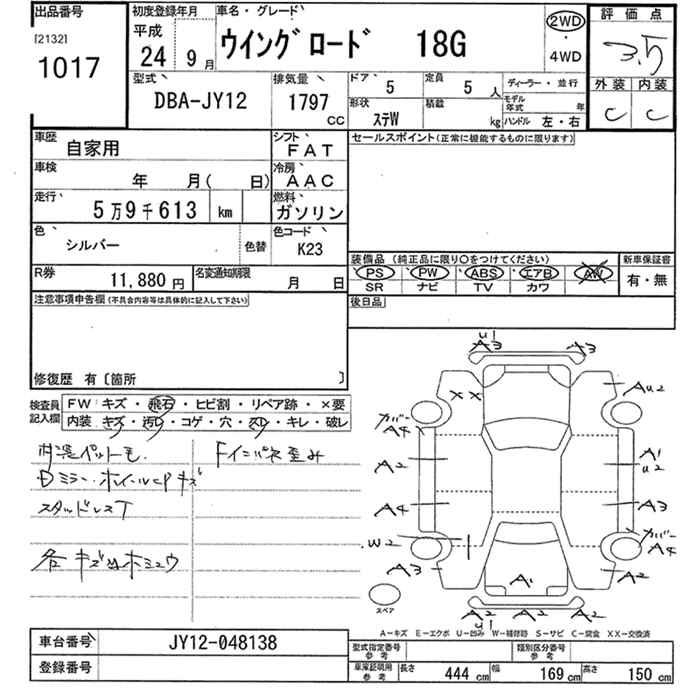 出品番号 初度登録年月 車名・グレード 評価点
[2132] 平成 ウイングロード 18G 2WD・4WD 3.5
1017 24年 9月
型式 排気量 ドア 定員 ディーラー・並行 外装 内装
DBA-JY12 1797 CC 5 5人 モデル年式 年 C C
形状 ステW 積載 kg ハンドル 左・右
車歴 自家用 シフト FAT セールスポイント(正常に機能するものに限ります)
車検 年 月( 日) 冷房 AAC
走行 5万9千613 km 燃料 ガソリン
色 シルバー 色替 色コード K23
装備品(純正品に限り○をつけてください) 新車保証書
R券 11,880円 名変通知期限 月 日 PS PW ABS エアB AW 有・無
SR ナビ TV カワ
注意事項申告欄(不具合内容等は具体的に記入して下さい) 後日品
修復歴 有〔箇所 〕
検査員記入欄 FW キズ・飛石・ヒビ割・リペア跡・×要
内装 キズ・汚レ・コゲ・穴・スレ・キレ・破レ
Fインパネ歪み
Dミラー・ホイールCPキズ
スタッドレスT
各キズ凹ホミュウ
u1
A3 A3
XX Au2
カバー
A4 A1
A2 u2
A4 A3
カバー
W2 A4
A3 A2
A1
A2 A2 A2
u1
スペア
A-キズ E-エクボ U-凹み W-補修跡 S-サビ C-腐食 XX-交換済
車台番号 JY12-048138 型式指定番号 参考 類別区分番号 参考
登録番号 車庫証明用 参考 長さ 444 cm 幅 169 cm 高さ 150 cm